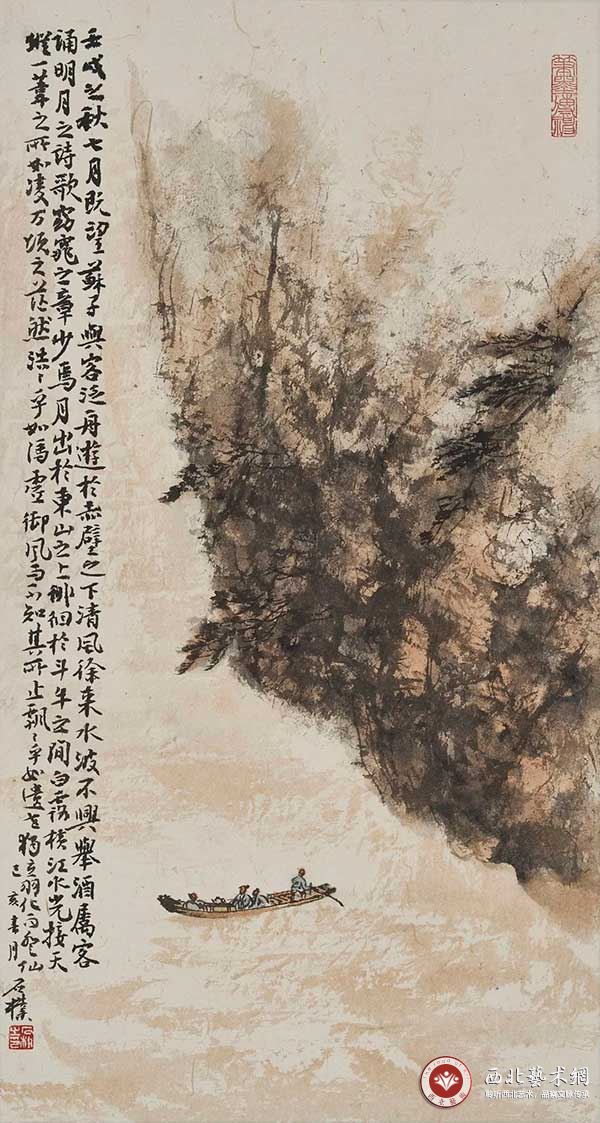 壬戌之秋七月既望蘇子與客泛舟遊於赤壁之下清風徐來水波不興舉酒屬客
誦明月之詩歌窈窕之章少焉月出於東山之上徘徊於斗牛之間白露橫江水光接天
縱一葦之所如凌万頃之茫然浩〻乎如馮虛御風而不知其所止飄〻乎如遺世獨立羽化而登仙
己亥春月
石樸
西北藝术網
聆听西北艺术，文脉传承
西北藝術